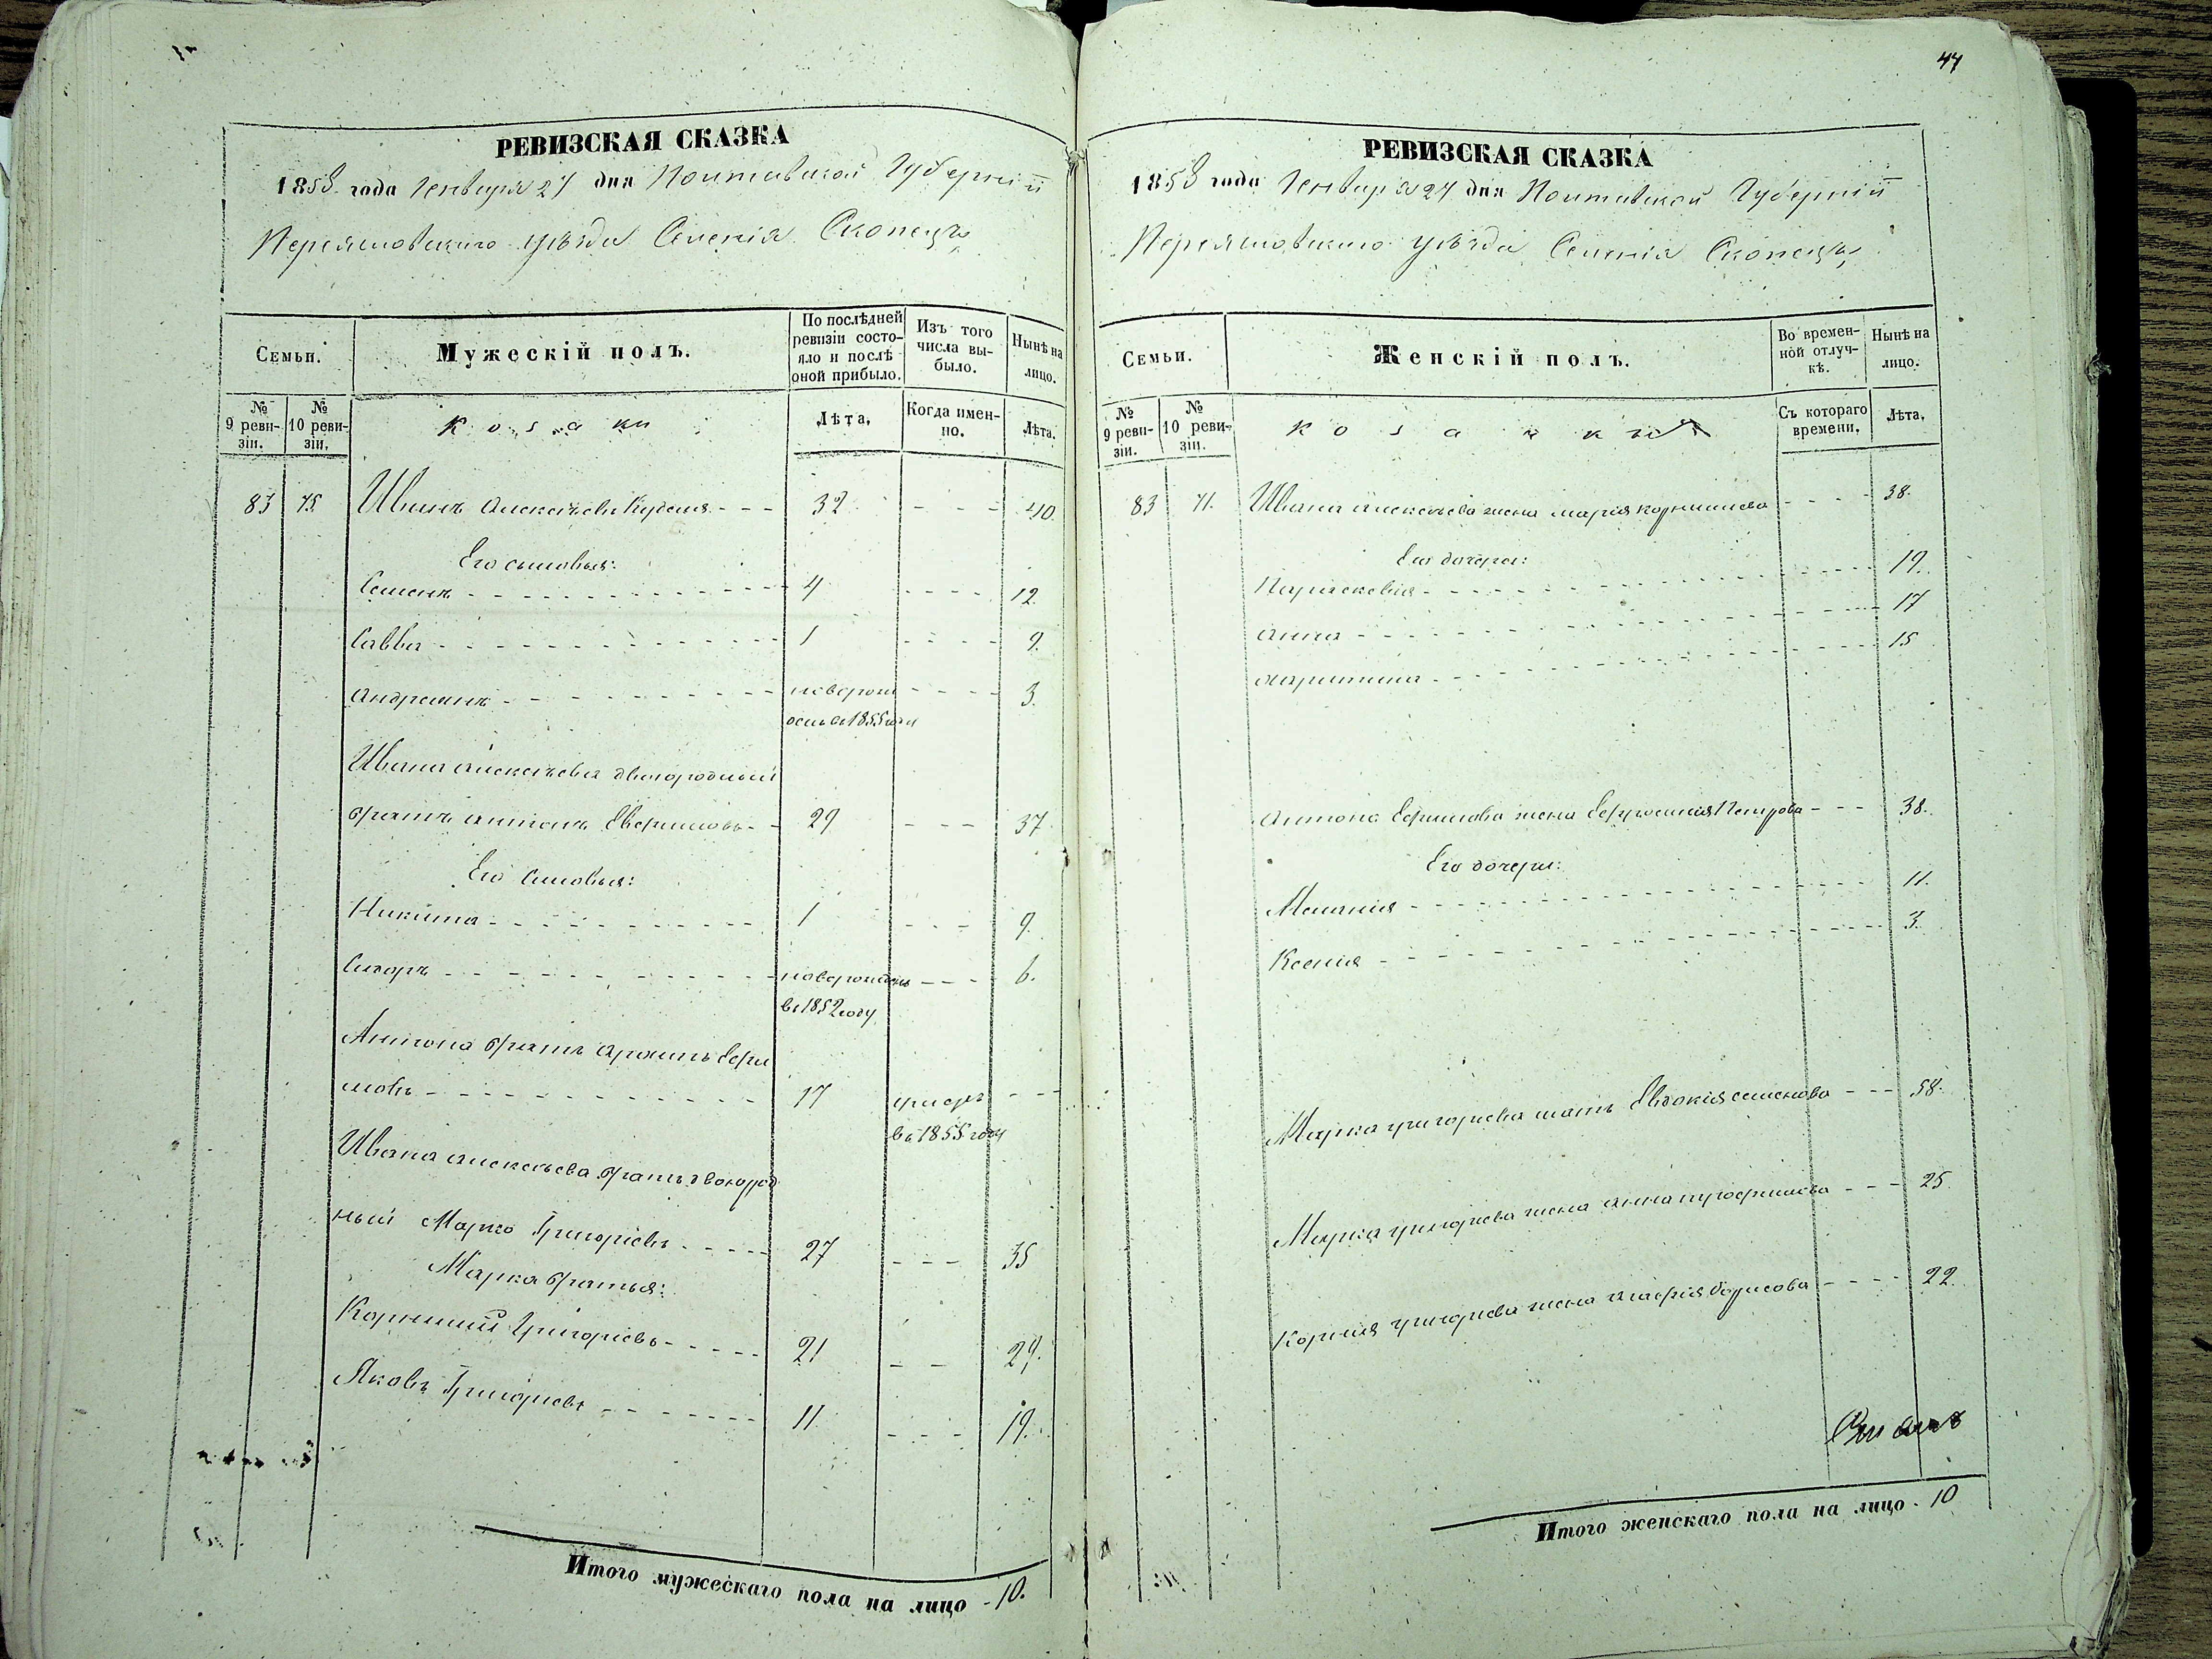 44
РЕВИЗСКАЯ СКАЗКА
1858 года Генваря 27 дня Полтавской Губерніи
Переяславскаго уѣзда Селенія Скопецъ
Семьи.
Мужескій полъ.
По послѣдней ревизіи состояло и послѣ оной прибыло.
Изъ того числа выбыло.
Нынѣ на лицо.
№ 9 ревизіи.
№ 10 ревизіи.
Козаки
Лѣта.
Когда именно.
Лѣта.
83 75 Иванъ Алексѣевъ - - - 32 - - - 40.
Его сыновья:
Семенъ - - - 4 - - - 12.
Савва - - - 1 - - - 9.
Андреянъ - - - новорож - - - 3.
денъ въ 1855 году
Ивана Алексѣева двоюродный
братъ Антонъ - - 29 - - - 37
Его сыновья:
Никита - - - 1 - - - 9.
Сидоръ - - - новорожденъ - - - 6.
въ 1852 году
Антона братъ
мовъ - - - 17 умеръ - - -
въ 1855 году
Ивана Алексѣева братъ двоюрод
ный Марко Григорьевъ - - - 27 - - - 35
Марка братья:
Корнилій Григорьевъ - - - 21 - - 29.
Яковъ Григорьевъ - - - 11. - - - 19.
Итого мужескаго пола на лицо - 10.
РЕВИЗСКАЯ СКАЗКА
1858 года Генваря 27 дня Полтавской Губерніи
Переяславскаго уѣзда Селенія Скопецъ
Семьи.
Женскій полъ.
Во временной отлучкѣ.
Нынѣ на лицо.
№ 9 ревизіи.
№ 10 ревизіи.
Козачки
Съ котораго времени.
Лѣта.
83 71. Ивана Алексѣева жена Марія Корнилиева - - - 38.
Его дочери:
Параскевія - - - 19.
Анна - - - 17
Харитина - - - 15
Антона жена Петрова - - - 38.
Его дочери:
Меланія - - - 11.
Ксенія - - - 3.
Марка Григорьева мать Евдокія Семенова - - - 58.
Марка Григорьева жена Анна - - - 25.
Корнилія Григорьева жена Агафія Борисова - - - 22.
Итого женскаго пола на лицо - 10